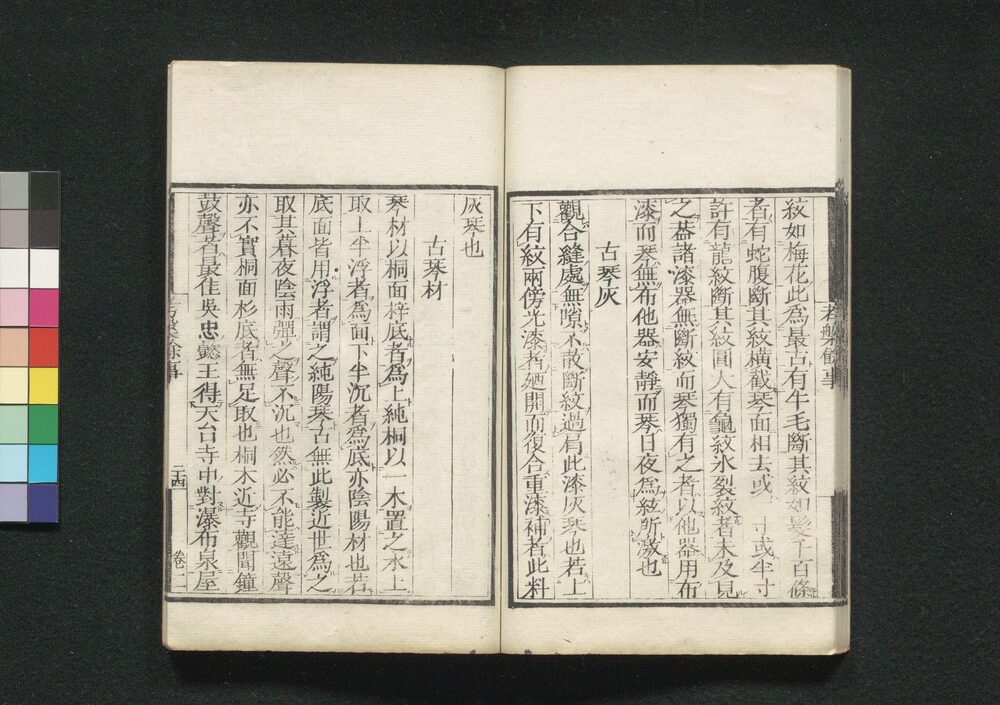 紋如梅花此爲最古有牛毛斷其紋如髮千百條
者有蛇腹斷其紋橫截琴面相去或一寸或半寸
許有龍紋斷其紋圓大有龜紋冰裂紋者未及見
之葢諸漆器無斷紋而琴獨有之者以他器用布
漆而琴無布他器安靜而琴日夜爲絃所激也
古琴灰
觀合縫處無隙不散斷紋過肩此漆灰琴也若上
下有紋兩傍光漆者廼開而復合重漆補者此料
灰琴也
古琴材
琴材以桐面梓底者爲上純桐以一木置之水上
取上半浮者爲面下半沉者爲底亦陰陽材也若
底面皆用浮者謂之純陽琴古無此製近世爲之
取其暮夜陰雨彈之聲不沉也然必不能達遠聲
亦不實桐面杉底者無足取也桐木近寺觀聞鐘
鼓聲者最佳吳忠懿王得天台寺中對瀑布泉屋
考槃餘事
二十四
卷二